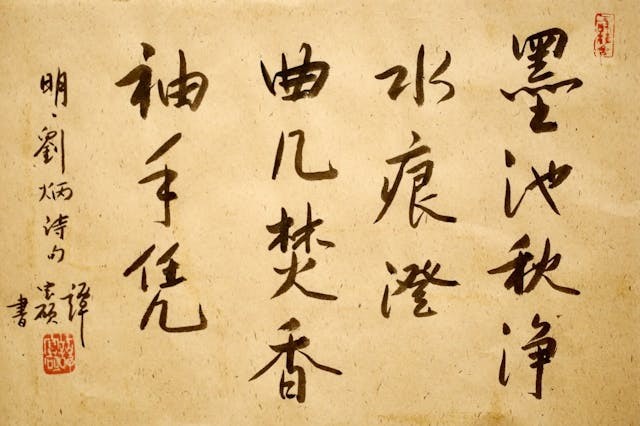 墨池秋净
水痕澄
曲几焚香
袖手凭
明、劉炳诗句
譚
書